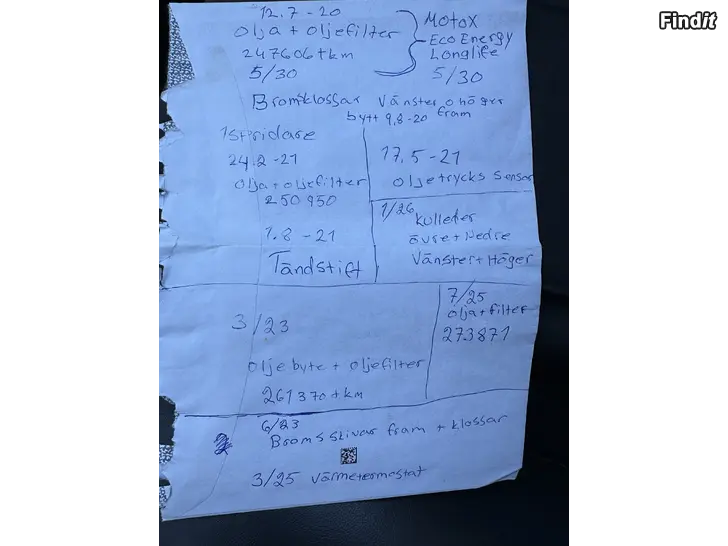 Findit
12.7-20
Olja + oljefilter
247606+km
5/30
MOTOX
Eco Energy
Longlife
5/30
Bromklossar vänster o höger
bytt 9,8-20 fram
1 spridare
24.2-21
Olja + oljefilter
250 950
17.5-21
Oljetrycks sensor
1/26
Kulleder
övre + Nedre
Vänster + Höger
1.8-21
Tändstift
7/25
Olja + filter
273871
3/23
Olje byte + oljefilter
261370+km
6/23
Bromsskivar fram + klossar
3/25 Värmetermostat